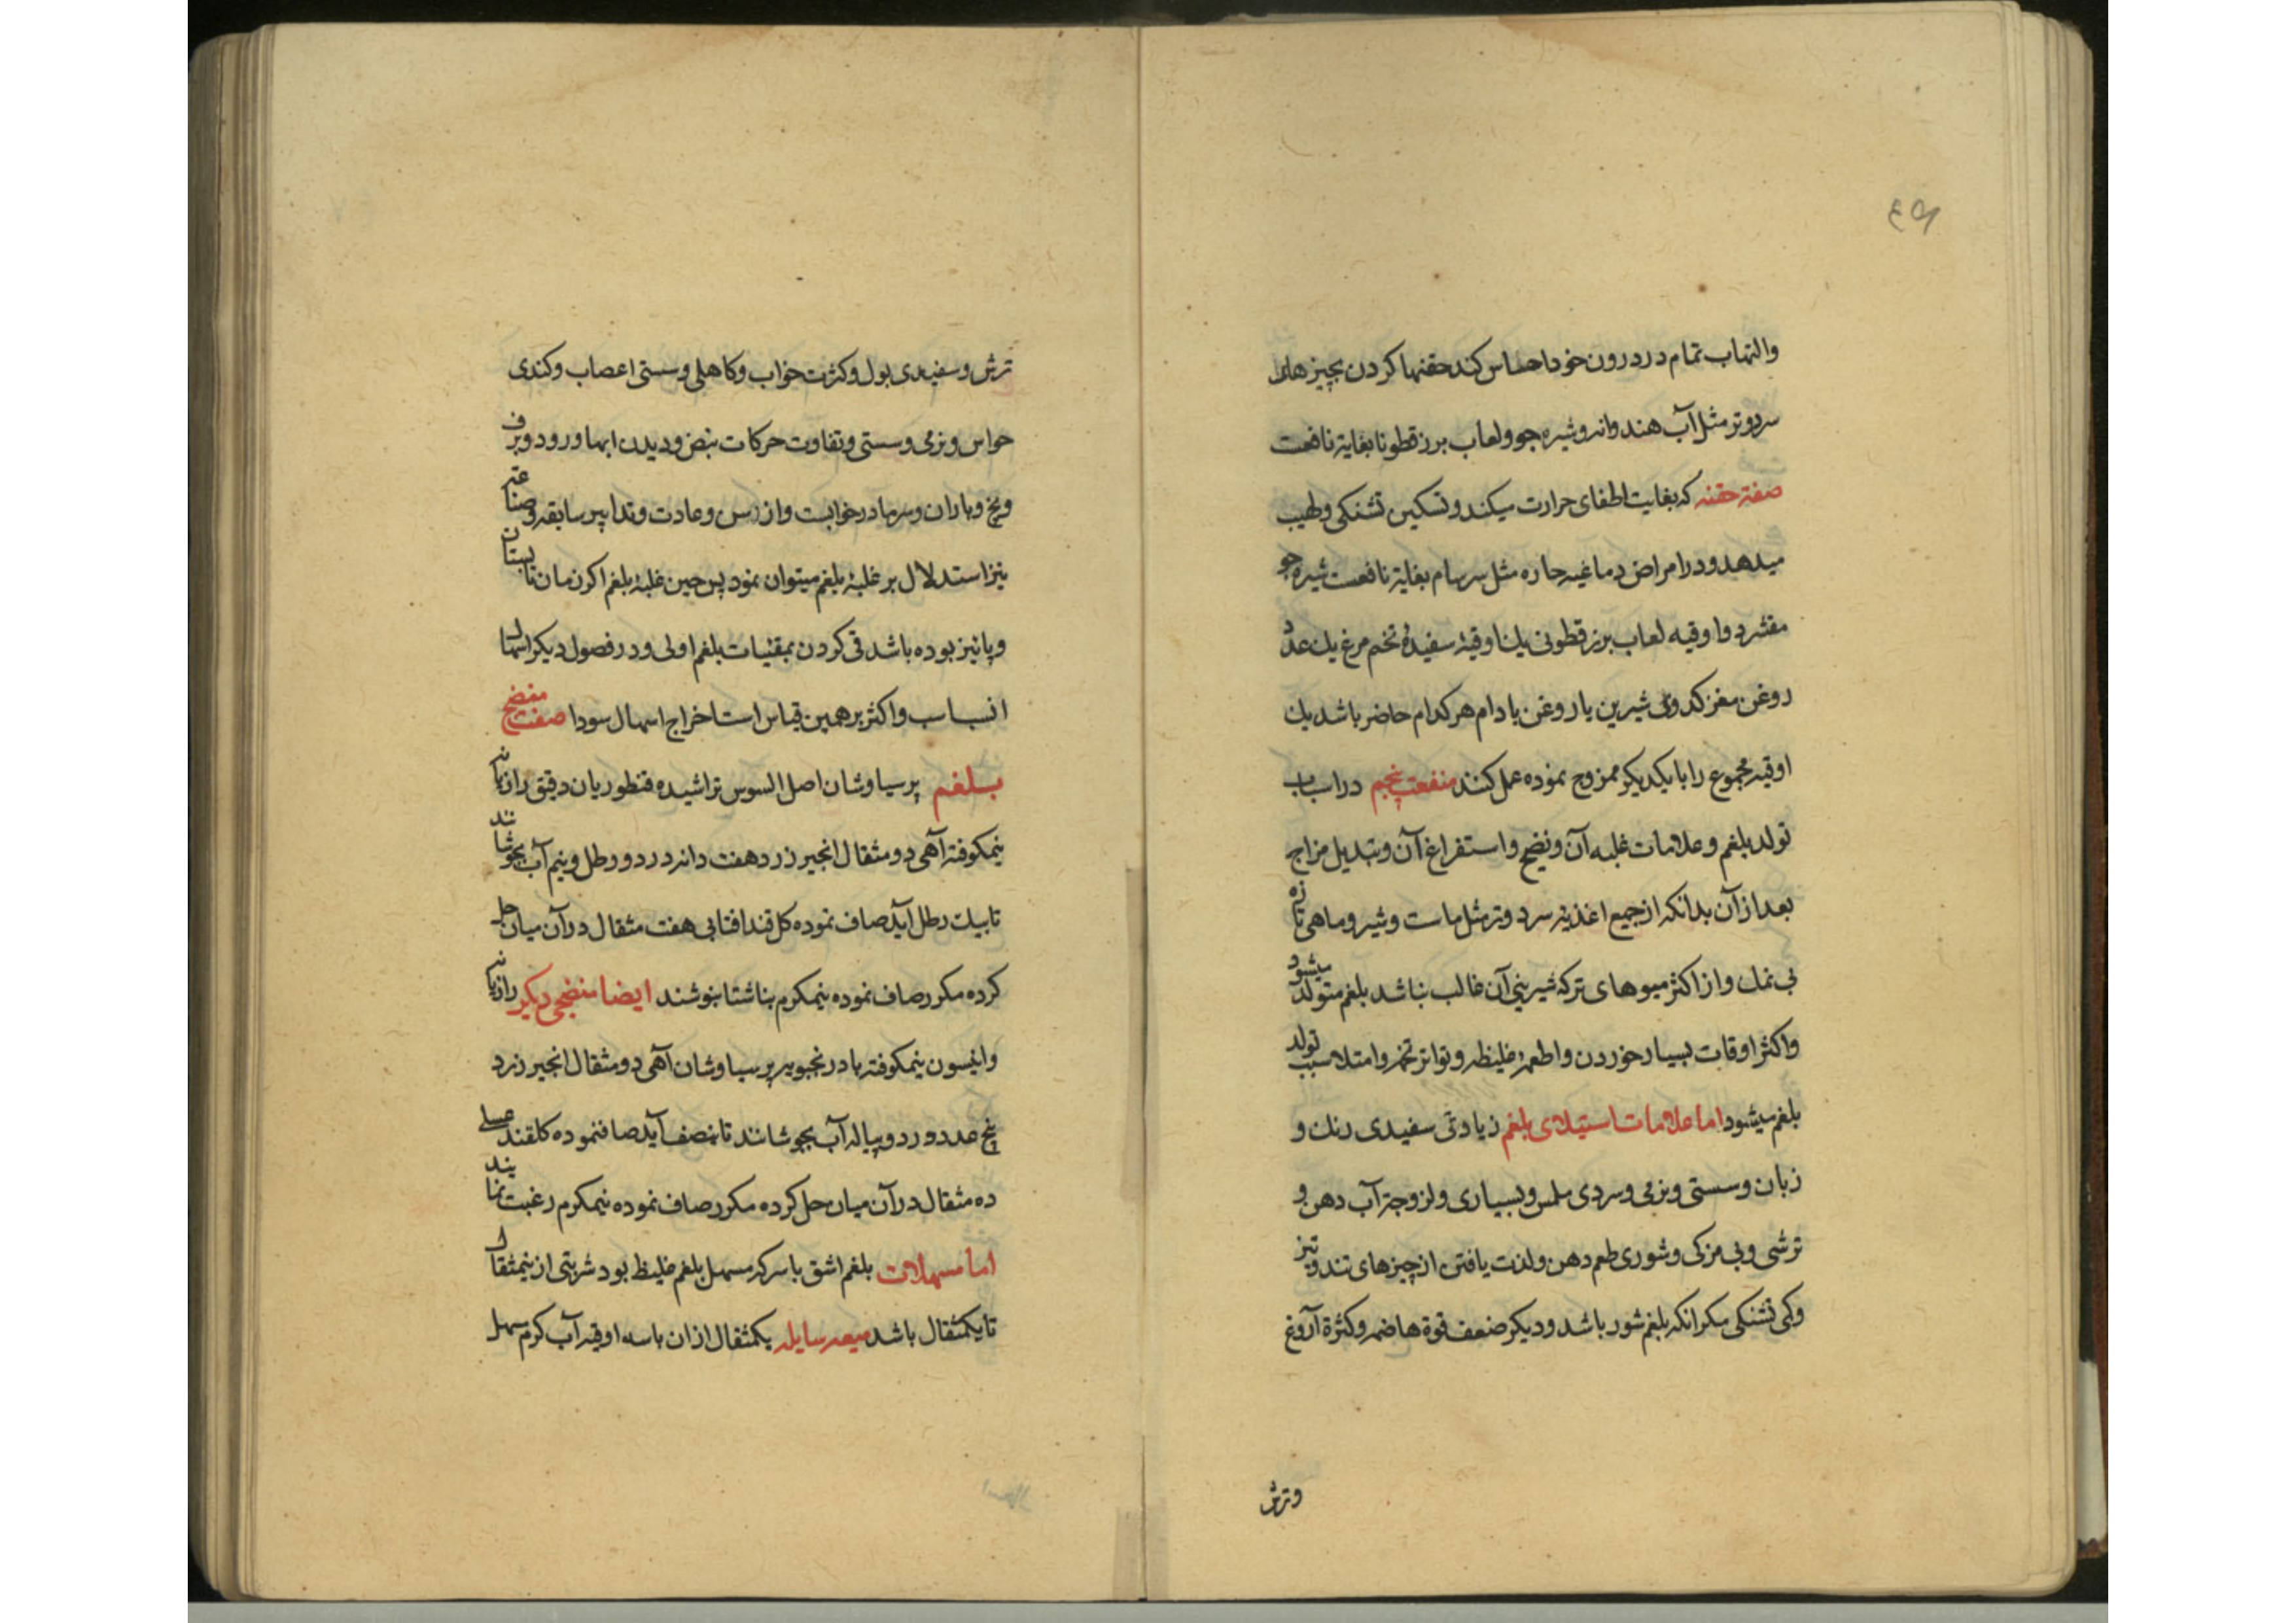 والتهاب تمام در درون خود احساس کند حقنها کردن بچیزهای
سرد وتر مثل آب هندوانه وشیره جو ولعاب برزقطونا بغایة نافعست
صفة حقنه که بغایت اطفای حرارت میکند وتسکین تشنکی ولهیب
میدهد ودر امراض دماغیه حاره مثل سرسام بغایة نافعست شیره جو
مقشر دو اوقیه لعاب برزقطونی یك اوقیه سفیدهٔ تخم مرغ یك عدد
روغن مغز کدوی شیرین یا روغن بادام هرکدام حاضر باشد یك
اوقیه مجموع را با یکدیکر ممزوج نموده عمل کنند منفعت پنجم در اسباب
تولد بلغم وعلامات غلبه آن ونضج واستفراغ آن وتبدیل مزاج
بعد از آن بدانکه از جمیع اغذیه سرد وتر مثل ماست وشیر وماهی تازه
بی نمك واز اکثر میوهای تر که شیرینی آن غالب نباشد بلغم متولد میشود
واکثر اوقات بسیار خوردن واطعمهٔ غلیظه وتواتر تخمه وامتلا سبب تولد
بلغم میشود اما علامات استیلای بلغم زیادتی سفیدی رنك و
زبان وسستی ونرمی وسردی ملمس وبسیاری ولزوجة آب دهن و
ترشی وبی مزکی وشوری طعم دهن ولذت یافتن از چیزهای تند وتیز
وکمی تشنکی مکر انکه بلغم شور باشد ودیکر ضعف قوة هاضمه وکثرة آروغ
وترش
ترش وسفیدی بول وکثرت خواب وکاهلی وسستی اعصاب وکندی
حواس ونرمی وسستی وتفاوت حرکات نبض ودیدن ابها ورود وبرف
ویخ وباران وسرما در خوابست واز سن وعادت وتدابیر سابقه وصناعت
نیز استدلال بر غلبهٔ بلغم میتوان نمود پس حین غلبهٔ بلغم اکر زمان تابستان
وپائیز بوده باشد قی کردن بمقئیات بلغم اولی ودر فصول دیکر اسهال
انسب واکثر برهمین قیاس است اخراج اسهال سودا صفت منضج
بلغم پرسیاوشان اصل السوس تراشیده قنطوریان دقیق رازیانه
نیمکوفته آهی دو مثقال انجیر زرد هفت دانه در دو رطل ونیم آب بجوشانند
تا بیك رطل آید صاف نموده کل قند افتابی هفت مثقال در آن میان حل
کرده مکرر صاف نموده نیمکرم بناشتا بنوشند ایضا منضجی دیکر رازیانه
وانیسون نیمکوفته بادرنجبویه پرسیاوشان آهی دو مثقال انجیر زرد
پنج عدد در دو پیاله آب بجوشانند تا بنصف آید صاف نموده کلقند عسلی
ده مثقال در آن میان حل کرده مکرر صاف نموده نیمکرم رغبت نمایند
اما مسهلات بلغم اشق با سرکه مسهل بلغم غلیظ بود شربتی از نیمثقال
تا یکمثقال باشد میعه سایله یکمثقال از ان با سه اوقیه آب کرم مسهل